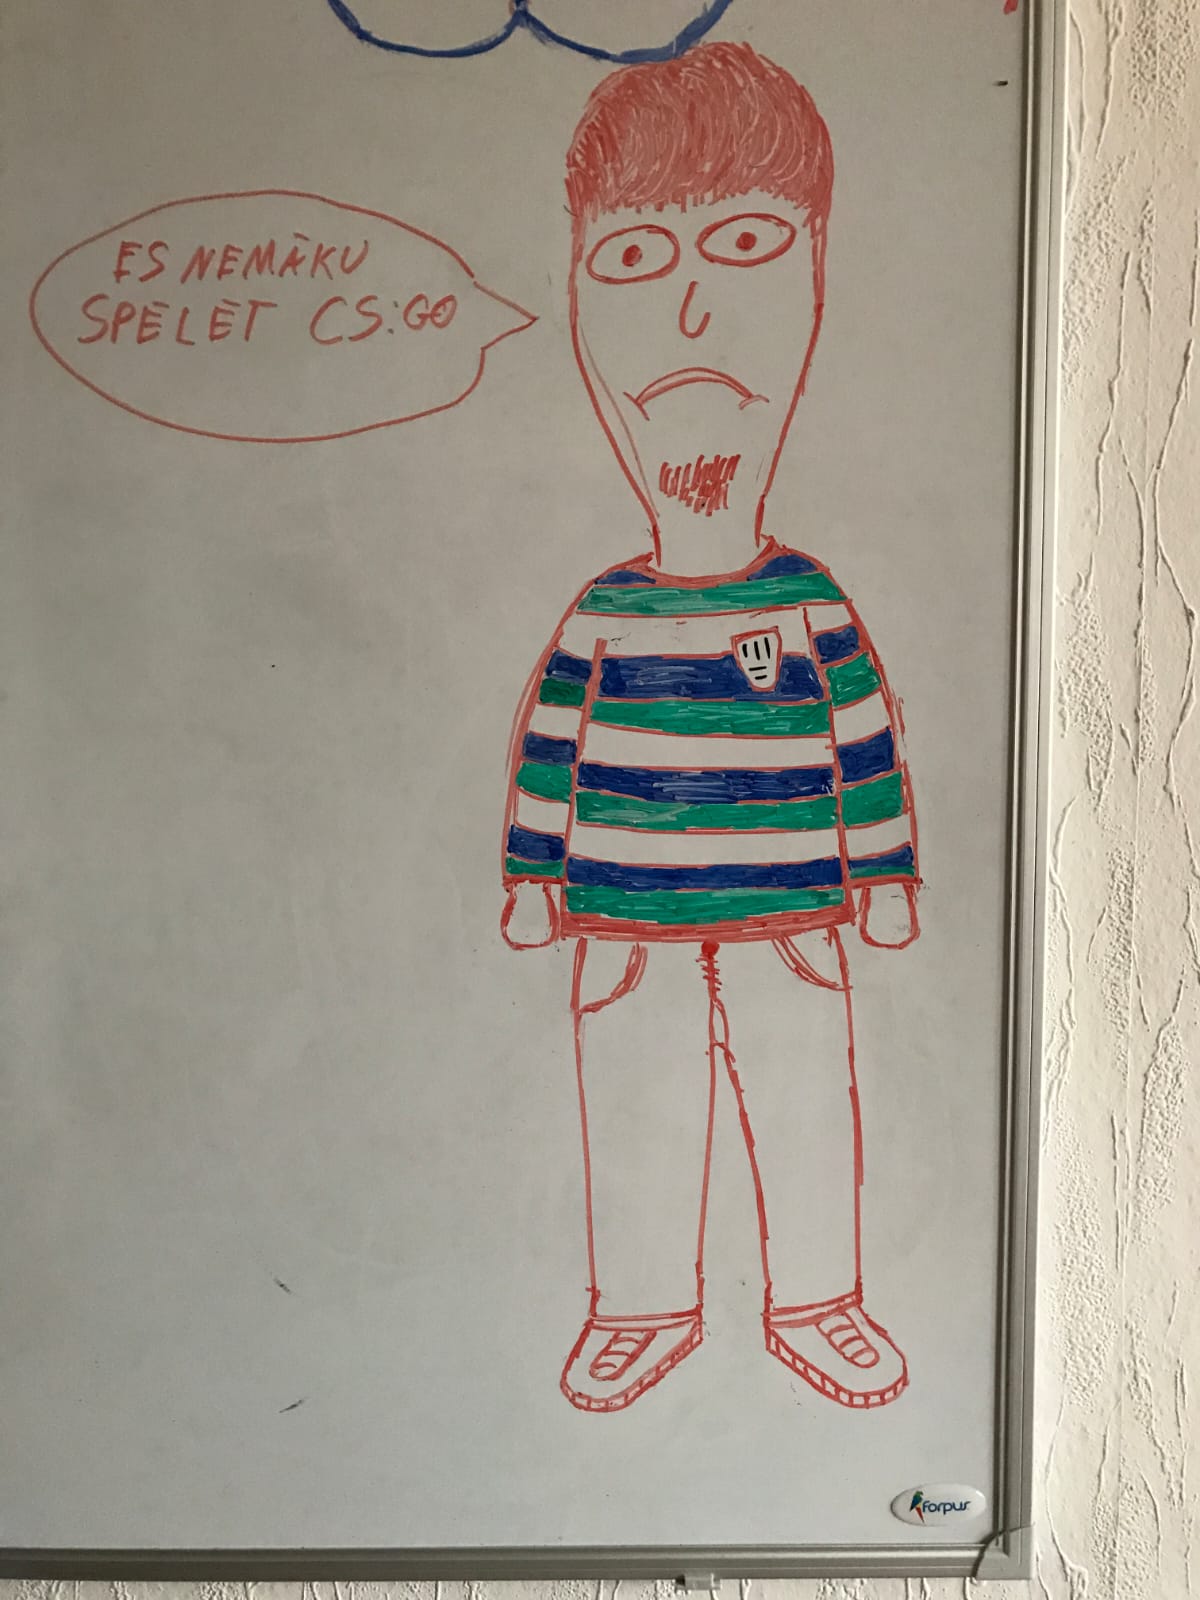 ES NEMĀKU
SPĒLĒT CS:GO
forpus